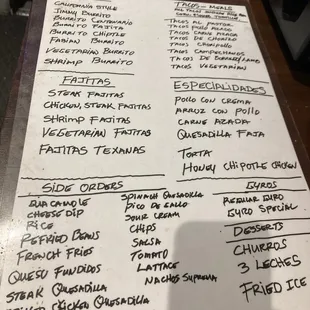 CALIFORNIA STYLE
JIMMY BURRITO
BURRITO CENTENARIO
BURRITO FAJITA
BURRITO CHIPTLE
FABIAN BURRITO
VEGETARIAN BURRITO
SHRIMP BURRITO
FAJITAS
STEAK FAJITAS
CHICKEN, STEAK FAJITAS
SHRIMP FAJITAS
VEGETARIAN FAJITAS
FAJITAS TEXANAS
TACOS - MEALS
TACOS AL PASTOR
TACOS POLLO ASADO
TACOS CARNE ASADA
TACOS DE CHORIZO
TACOS CAMPECHANOS
TACOS VEGETARIAN
ESPECIALIDADES
POLLO CON CREMA
ARROZ CON POLLO
CARNE AZADA
QUESADILLA FAJA
TORTA
HONEY CHIPOTLE CHICKEN
SIDE ORDERS
GUACAMOLE
CHEESE DIP
RICE
REFRIED BEANS
FRENCH FRIES
QUESU FUNDIDOS
STEAK QUESADILLA
CHICKEN QUESADILLA
SPINACH QUESADILLA
PICO DE GALLO
SOUR CREAM
CHIPS
SALSA
TOMATO
LATTACE
NACHOS SUPREMA
GYROS
REGULAR GYRO
GYRO SPECIAL
DESSERTS
CHURROS
3 LECHES
FRIED ICE